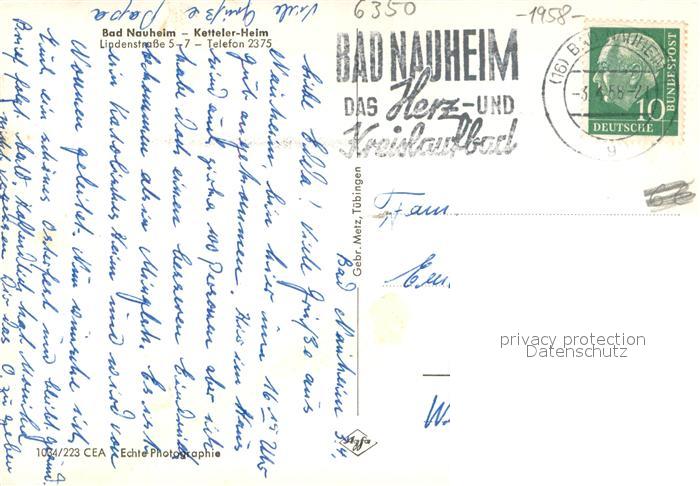 6350
-1958-
Bad Nauheim – Ketteler-Heim
Lindenstraße 5-7 – Telefon 2375
BAD NAUHEIM
DAS Herz-UND
Kreislaufbad
(16) BAD NAUHEIM
58-
g
10
DEUTSCHE
BUNDESPOST
Viele Grüße Papa
Bad Nauheim 3.4.
Viele Grüße aus
Nauheim, bin hier um 16 Uhr
gut angekommen. Hier im Haus
sind 100 Personen aber ich
habe doch einen besseren Eindruck
bekommen als in Es ist
ein Heim und wird von
Nonnen geleitet. Nun wünsche ich
Euch ein schönes Osterfest und bleibt gesund.
Brief folgt bald. Hoffentlich hat
nicht vergessen Dir das zu geben
Gebr. Metz, Tübingen
Fam
privacy protection
Datenschutz
1034/223 CEA Echte Photographie